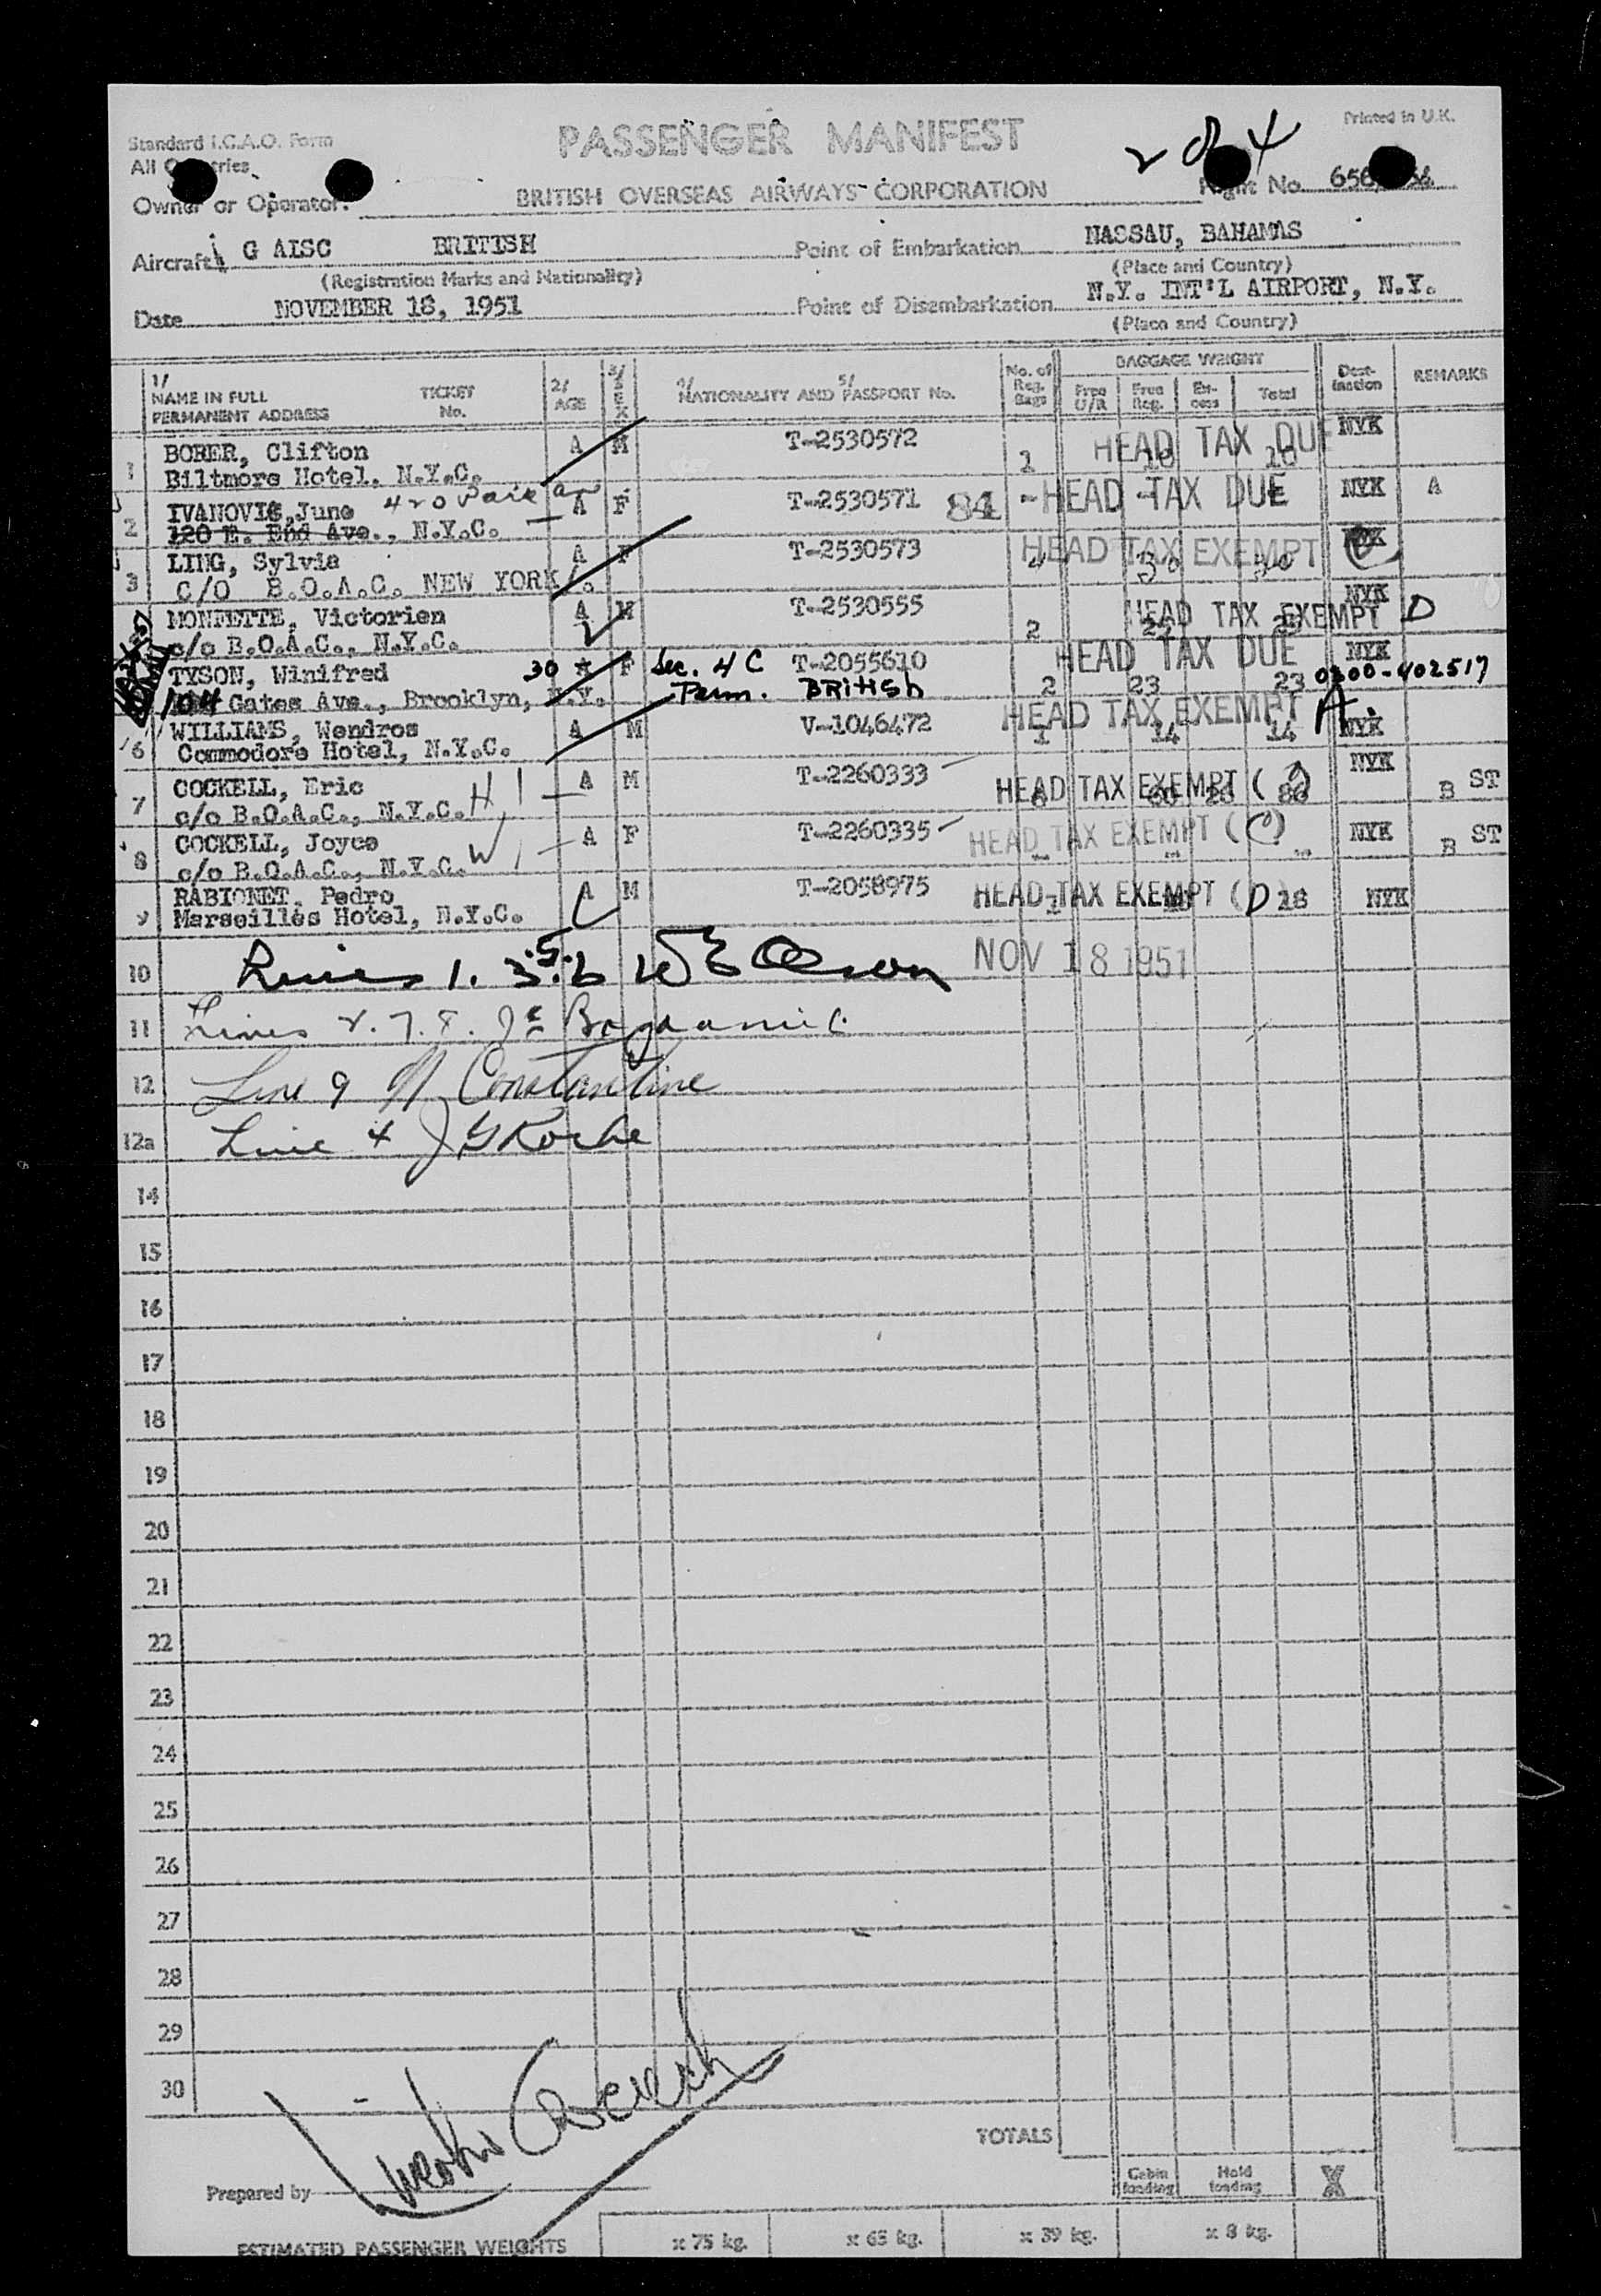 Standard I.C.A.O. Form
All
PASSENGER MANIFEST
2 of 4
Printed in U.K.
Owner or Operator.
BRITISH OVERSEAS AIRWAYS CORPORATION
No.
Aircraft G AISC BRITISH
(Registration Marks and Nationality)
Point of Embarkation NASSAU, BAHAMAS
(Place and Country)
Date NOVEMBER 18, 1951
Point of Disembarkation N.Y. INT'L AIRPORT, N.Y.
(Place and Country)
1/ NAME IN FULL
PERMANENT ADDRESS
TICKET No.
2/ AGE
3/ SEX
4/ 5/ NATIONALITY AND PASSPORT No.
No. of Reg. Bags
BAGGAGE WEIGHT
Free U/R
Free Reg.
Ex-cess
Total
Dest-ination
REMARKS
1 BOBER, Clifton A M T-2530572 1 HEAD TAX DUE NYK
Biltmore Hotel, N.Y.C.
2 IVANOVIC, June 420 Park av A F T-2530571 84 - HEAD TAX DUE NYK A
120 E. End Ave., N.Y.C.
3 LING, Sylvia A F T-2530573 HEAD TAX EXEMPT 30
C/O B.O.A.C. NEW YORK
MONFETTE, Victorien A M T-2530555 2 HEAD TAX EXEMPT D NYK
c/o B.O.A.C., N.Y.C.
TYSON, Winifred 30 F Sec. 4 C T-2055610 2 23 HEAD TAX DUE 23 NYK 0300-402517
104 Gates Ave., Brooklyn, N.Y. Perm. BRITISH
6 WILLIAMS, Wendros A M V-1046472 1 14 HEAD TAX EXEMPT 14 A. NYK
Commodore Hotel, N.Y.C.
7 COCKELL, Eric H 1 A M T-2260333 HEAD TAX EXEMPT NYK B ST
c/o B.O.A.C., N.Y.C.
8 COCKELL, Joyce W 1 A F T-2260335 HEAD TAX EXEMPT (C) NYK B ST
c/o B.O.A.C., N.Y.C.
9 RABIONET, Pedro A M T-2058975 HEAD TAX EXEMPT (D) 18 NYK
Marseilles Hotel, N.Y.C.
10 Lines 1. 3. 5. 6 NOV 18 1951
11 Lines 2. 7. 8.
12 Line 9 Constantine
12a Line 4 J G Roche
14
15
16
17
18
19
20
21
22
23
24
25
26
27
28
29
30
TOTALS
Prepared by
Cabin loading
Hold loading
X
ESTIMATED PASSENGER WEIGHTS x 75 kg. x 65 kg. x 39 kg. x 8 kg.